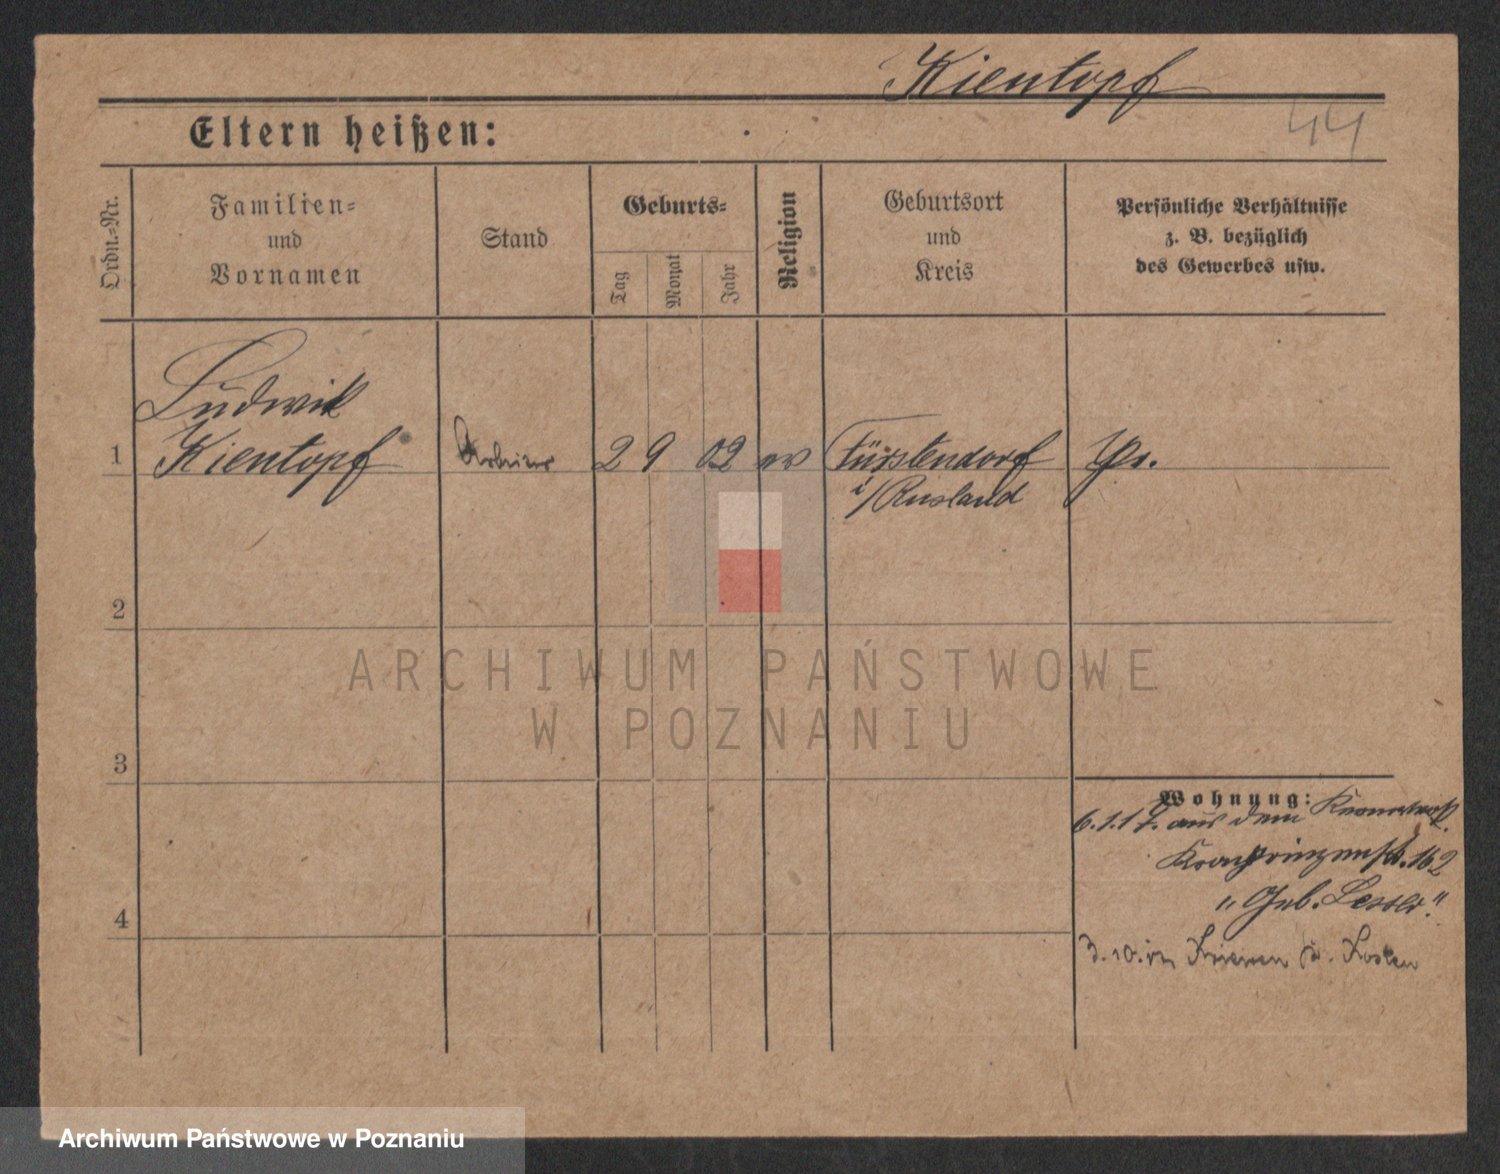 Kientopf
44
Eltern heißen:
Ordn.-Nr.
Familien-
und
Vornamen
Stand
Geburts-
Tag
Monat
Jahr
Religion
Geburtsort
und
Kreis
Persönliche Verhältnisse
z. B. bezüglich
des Gewerbes usw.
Ludwik
1 Kientopf 2 9 02 ev Fürstendorf Pr.
i/Rusland
2
ARCHIWUM PAŃSTWOWE
W POZNANIU
3
Wohnung:
6.1.17. aus dem
Kronprinzenstr. 162
4
3.10. in Kriewen Kr. Kosten
Archiwum Państwowe w Poznaniu